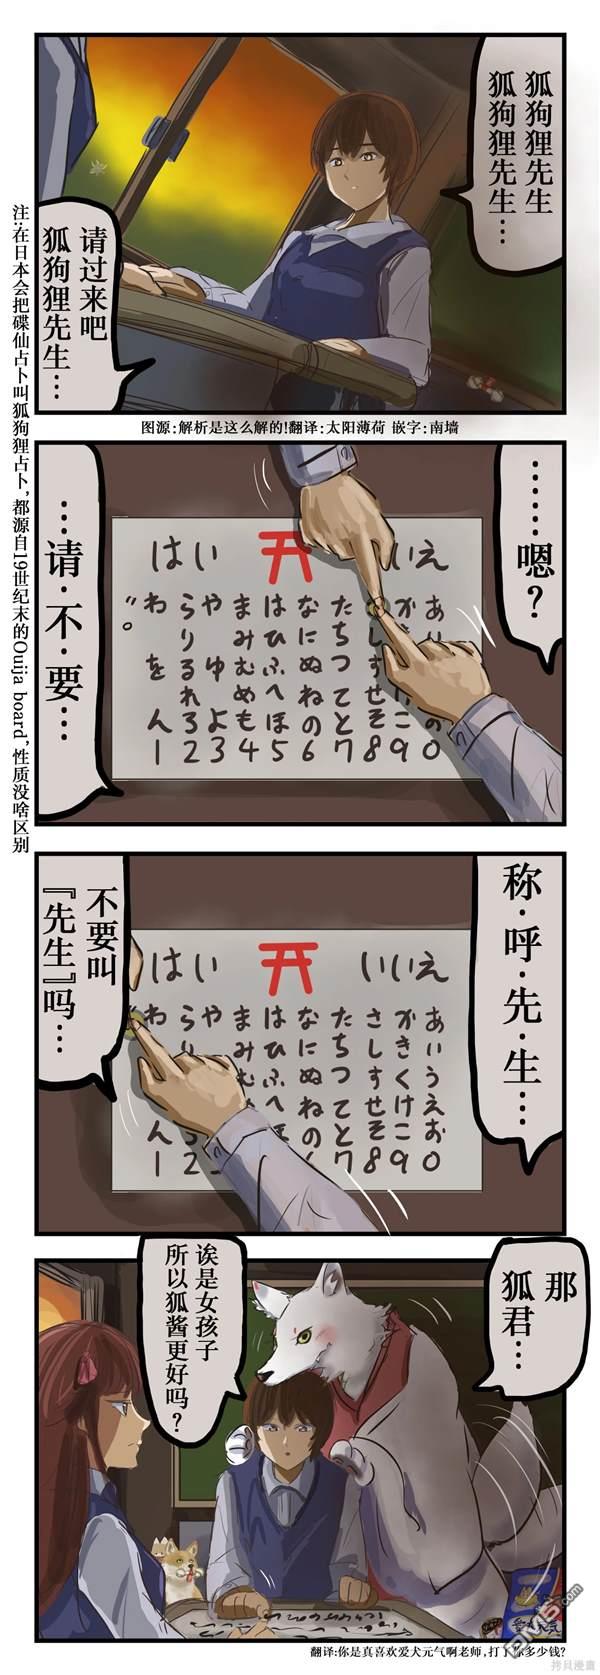 狐狗狸先生
狐狗狸先生…
请过来吧
狐狗狸先生…
注:在日本会把碟仙占卜叫狐狗狸占卜,都源自19世纪末的Ouija board,性质没啥区别
图源:解析是这么解的!翻译:太阳薄荷 嵌字:南墙
………嗯?
…请·不·要…
はい
いえ
わをん1
らりるれろ2
やゆよ3
まみむめも4
はひふへほ5
なにぬねの6
たちつてと7
しすせそ8
こ9
0
称·呼·先·生…
不要叫
『先生』吗…
はい
いいえ
あいうえお0
かきくけこ9
さしすせそ8
たちつてと7
なにぬねの
はひふへ
まみむ
や
らり
わ
ん1
2
那
狐君…
诶是女孩子
所以狐酱更好吗?
愛犬元気
翻译:你是真喜欢爱犬元气啊老师,打了你多少钱?
拷贝漫画